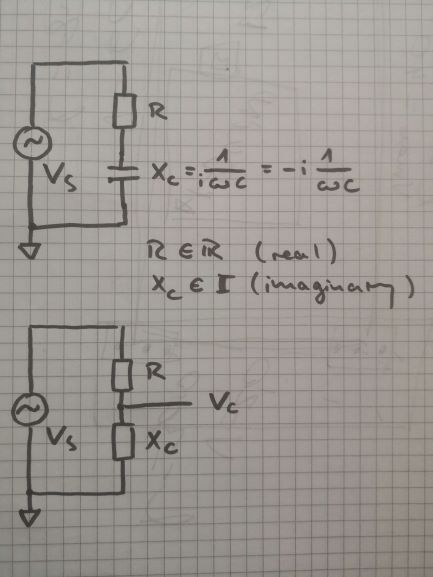 R
V_S
X_C = 1/(iωC) = -i 1/(ωC)
R ∈ ℝ (real)
X_C ∈ 𝕀 (imaginary)
R
V_C
V_S
X_C